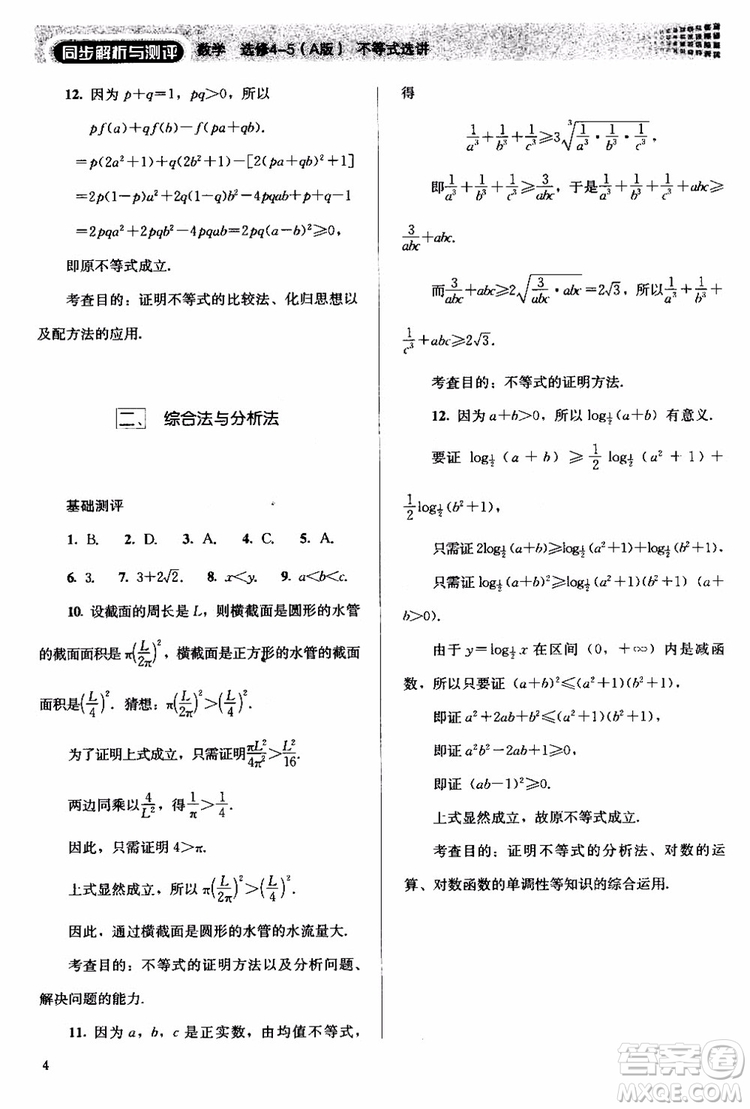 同步解析与测评 数学 选修4-5（A版） 不等式选讲
12. 因为 p+q=1，pq>0，所以
pf(a)+qf(b)-f(pa+qb).
=p(2a²+1)+q(2b²+1)-[2(pa+qb)²+1]
=2p(1-p)a²+2q(1-q)b²-4pqab+p+q-1
=2pqa²+2pqb²-4pqab
=2pq(a-b)²≥0，
即原不等式成立.
考查目的：证明不等式的比较法、化归思想以
及配方法的应用.
二、 综合法与分析法
基础测评
1. B. 2. D. 3. A. 4. C. 5. A.
6. 3. 7. 3+2√2. 8. x<y. 9. a<b<c.
10. 设截面的周长是 L，则横截面是圆形的水管
的截面面积是 π(L/2π)²，横截面是正方形的水管的截面
面积是(L/4)². 猜想：π(L/2π)²>(L/4)².
为了证明上式成立，只需证明 πL²/4π²>L²/16.
两边同乘以 4/L²，得 1/π>1/4.
因此，只需证明 4>π.
上式显然成立，所以 π(L/2π)²>(L/4)².
因此，通过横截面是圆形的水管的水流量大.
考查目的：不等式的证明方法以及分析问题、
解决问题的能力.
11. 因为 a，b，c 是正实数，由均值不等式，
4
得
1/a³+1/b³+1/c³≥3∛(1/a³·1/b³·1/c³)，
即 1/a³+1/b³+1/c³≥3/abc，于是 1/a³+1/b³+1/c³+abc≥
3/abc+abc.
而 3/abc+abc≥2√(3/abc·abc)=2√3，所以 1/a³+1/b³+
1/c³+abc≥2√3.
考查目的：不等式的证明方法.
12. 因为 a+b>0，所以 log½(a+b) 有意义.
要证 log½(a+b)≥1/2 log½(a²+1)+
1/2 log½(b²+1)，
只需证 2log½(a+b)≥log½(a²+1)+log½(b²+1)
只需证 log½(a+b)²≥log½(a²+1)(b²+1)(a+
b>0).
由于 y=log½x 在区间（0，+∞）内是减函
数，所以只要证 (a+b)²≤(a²+1)(b²+1)，
即证 a²+2ab+b²≤(a²+1)(b²+1)，
即证 a²b²-2ab+1≥0，
即证 (ab-1)²≥0，
上式显然成立，故原不等式成立.
考查目的：证明不等式的分析法、对数的运
算、对数函数的单调性等知识的综合运用.
答案圈
MXQE.COM